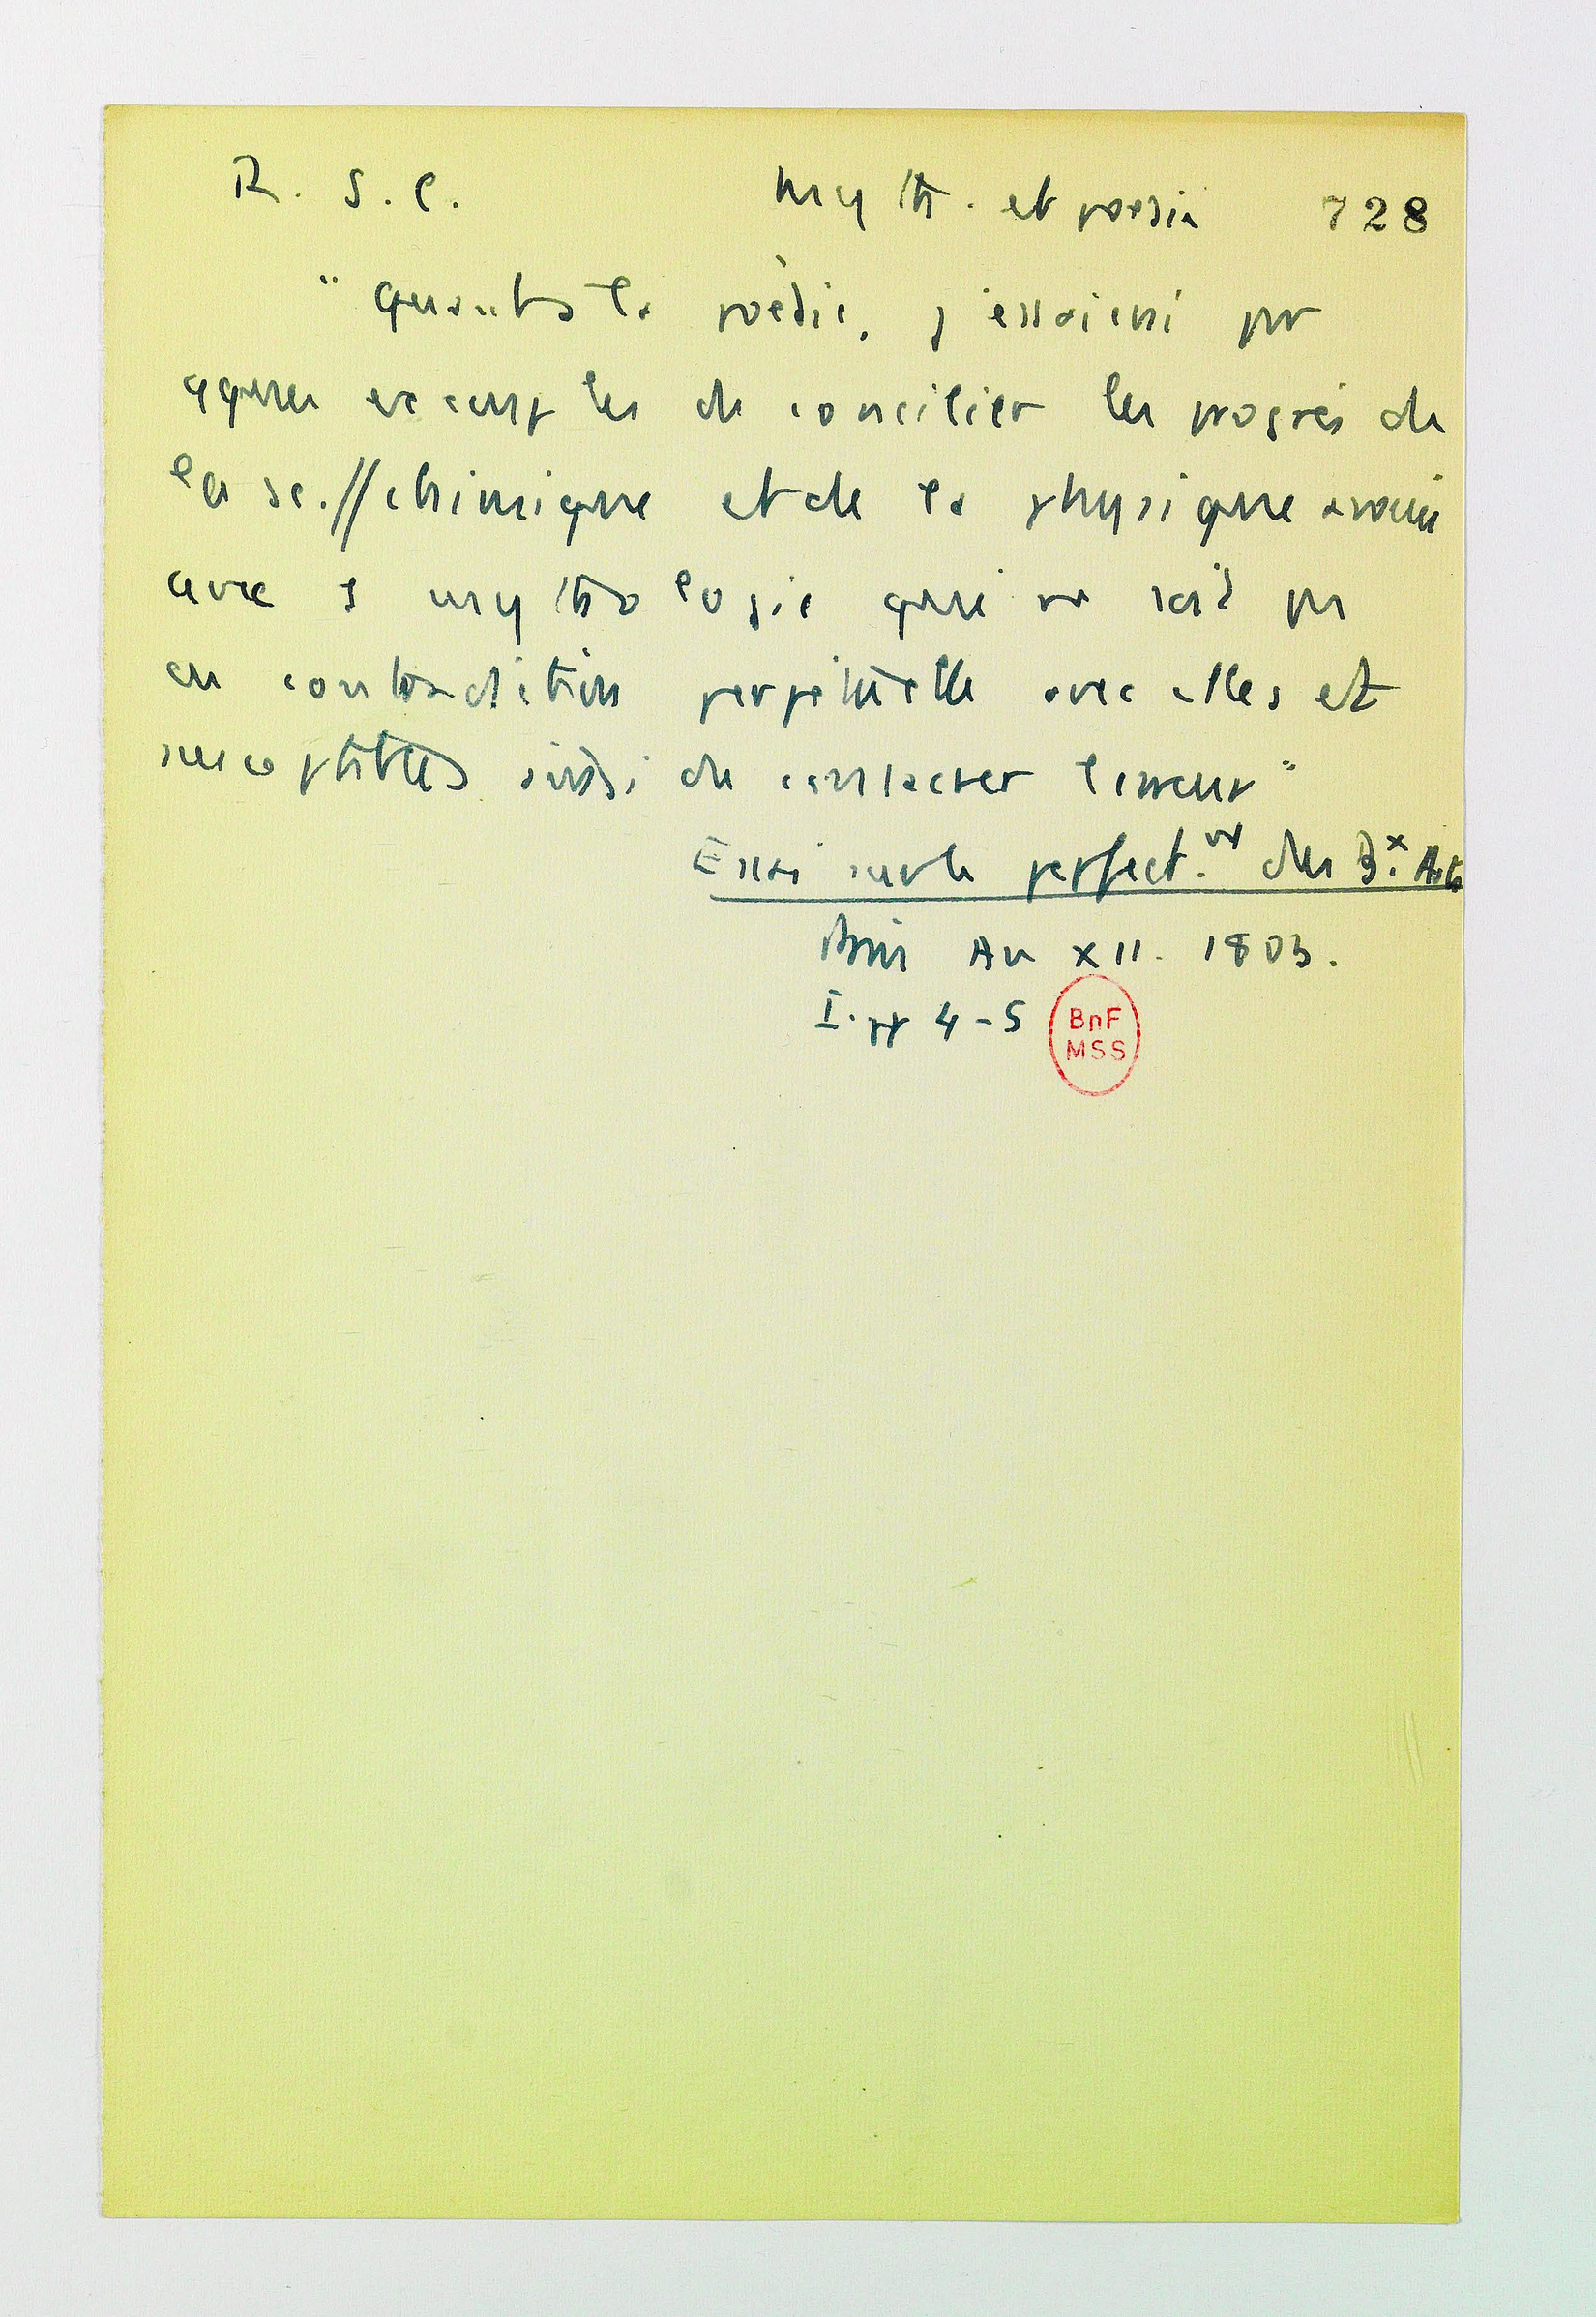 R. S. C. Myth. et poésie 728
"Quant à la poésie, j'essaierai par
qques exemples de concilier les progrès de
la sc. // chimique et de la physique
avec 1 mythologie qui ne soit pas
en contradiction perpétuelle avec elles et
susceptibles aussi de consacrer l'erreur"
Essai sur le perfect.nt des B.x Arts
Paris An XII. 1803.
I. pp 4-5
BnF
MSS